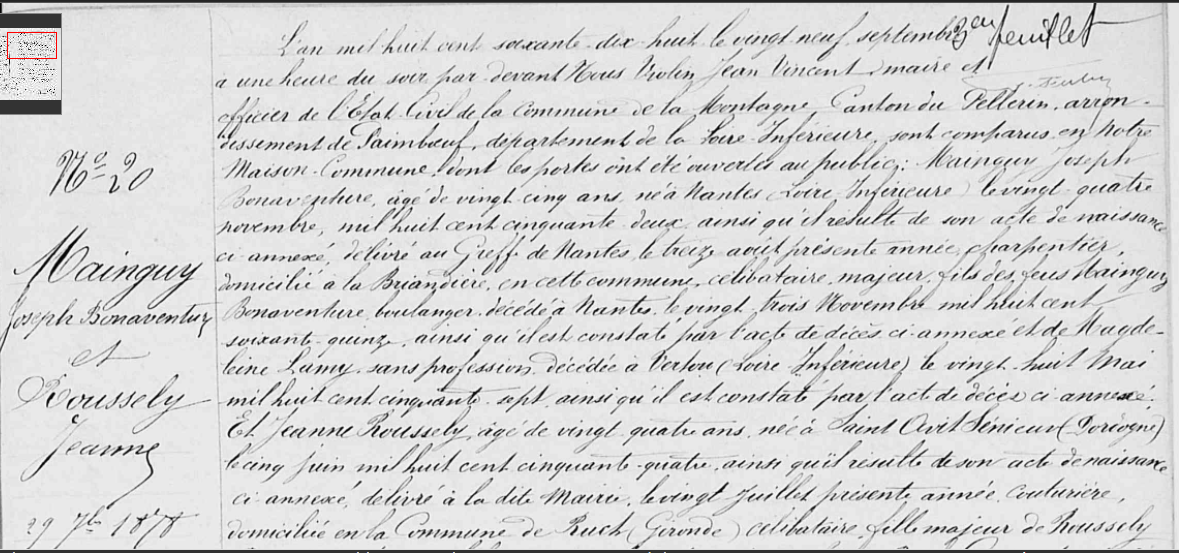 feuillet
L'an mil huit cent soixante-dix-huit le vingt neuf septembre
à une heure du soir par devant Nous Violin Jean Vincent maire et
officier de l'Etat-Civil de la Commune de la Montagne, Canton du Pellerin, arron-
dissement de Paimbœuf, département de la Loire-Inférieure, sont comparus en Notre
Maison-Commune, dont les portes ont été ouvertes au public: Mainguy Joseph
Bonaventure, âgé de vingt-cinq ans, né à Nantes (Loire Inférieure) le vingt-quatre
novembre, mil huit cent cinquante deux, ainsi qu'il resulte de son acte de naissance
ci-annexé, délivré au Greffe de Nantes, le treize août présente année, charpentier,
domicilié à la Briandière, en cette commune, célibataire, majeur, fils des feus Mainguy
Bonaventure, boulanger, décédé à Nantes, le vingt-trois Novembre mil huit cent
soixante-quinze, ainsi qu'il est constaté par l'acte de décès ci-annexé et de Magde-
leine Lamy, sans profession, décédée à Vertou (Loire Inférieure) le vingt-huit Mai
mil huit cent cinquante-sept, ainsi qu'il est constaté par l'act de décès ci-annexé.
Et Jeanne Roussely, âgé de vingt-quatre ans, née à Saint Avit Senieur (Dordogne)
le cinq juin mil huit cent cinquante-quatre, ainsi qu'il resulte de son acte de naissance
ci-annexé, délivré à la dite Mairie, le vingt Juillet présente année, couturière,
domiciliée en la Commune de Ruch (Gironde) célibataire, fille majeur de Roussely
N° 20
Mainguy
Joseph Bonaventure
et
Roussely
Jeanne
29 7bre 1878